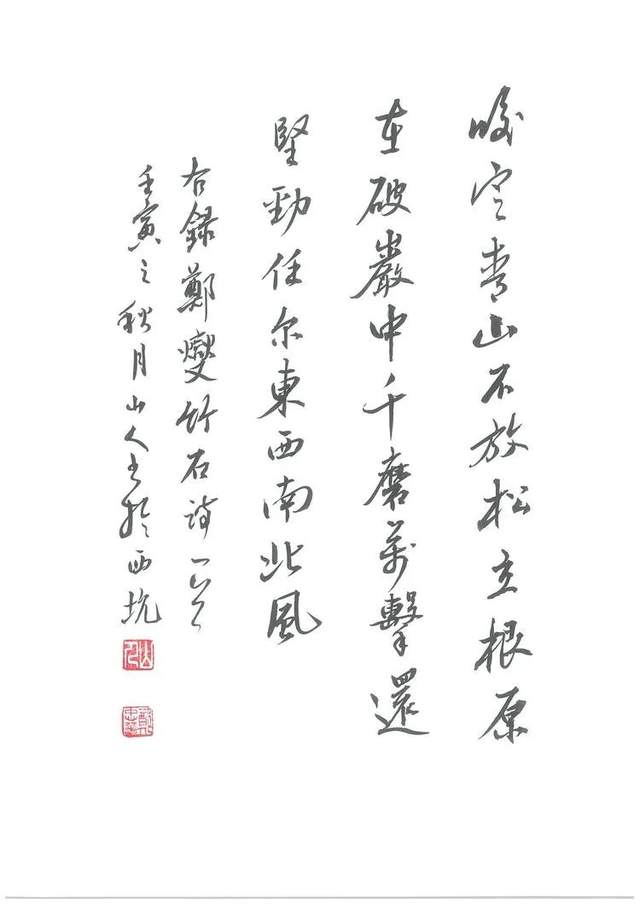 咬定青山不放松立根原
在破巖中千磨萬擊還
堅勁任尔東西南北風
右録鄭燮竹石詩一首
壬寅之秋月山人书於西坑